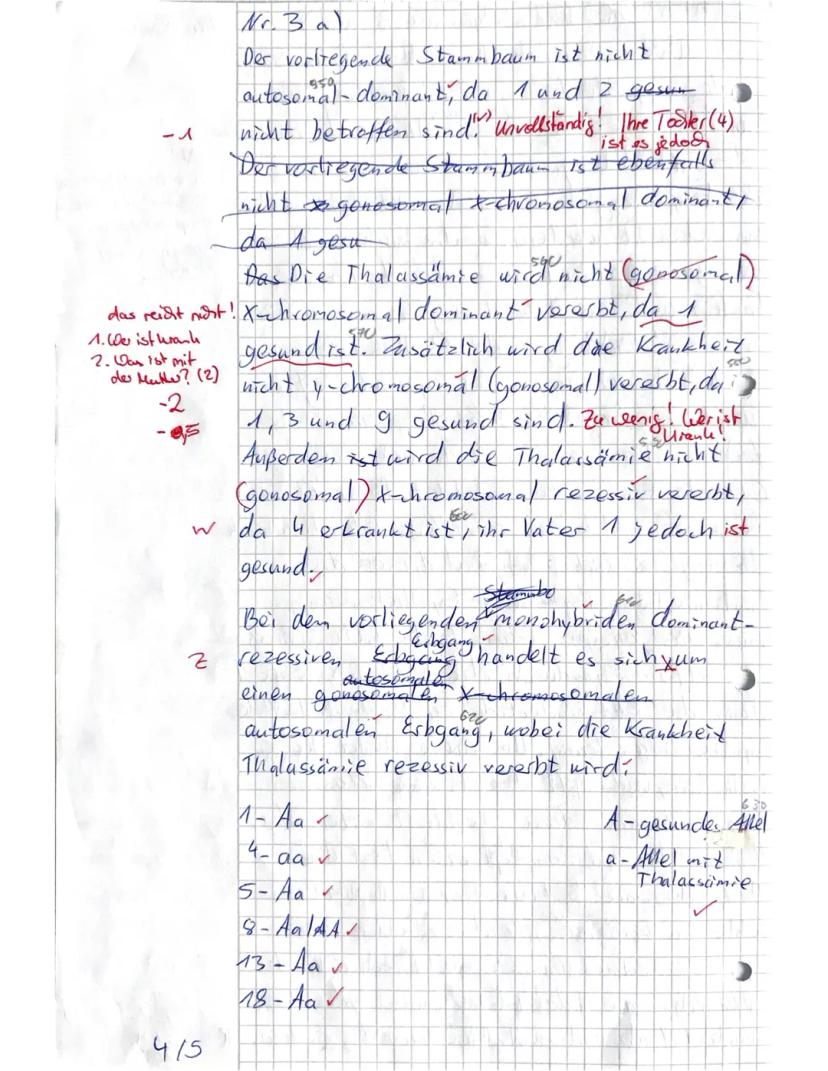 Nr. 3 a)
Der vorliegende Stammbaum ist nicht
950
autosomal-dominant, da 1 und 2 gesun
-1 nicht betroffen sind. (✓) Unvollständig! Ihre Tochter (4)
ist es jedoch
Der vorliegende Stammbaum ist ebenfalls
nicht gonosomal x-chromosomal dominant,
da 1 gesu
Das Die Thalassämie wird nicht (gonosomal)
das reicht nicht! X-chromosomal dominant vererbt, da 1
1. Wer ist krank
570
gesund ist. Zusätzlich wird die Krankheit
2. Was ist mit
der Mutter? (2)
nicht y-chromosomal (gonosomal) vererbt, da
-2
1, 3 und 9 gesund sind. Zu wenig! Wer ist
krank?
Außerden ist wird die Thalassämie nicht
(gonosomal) x-chromosomal rezessiv vererbt,
W da 4 erkrankt ist, ihr Vater 1 jedoch ist
gesund.
Stammbo
Bei dem vorliegenden monohybriden dominant-
Erbgang
Z rezessiven Erbgang handelt es sich um
autosomalen
einen gonosomalen X-chromosomalen
620
autosomalen Erbgang, wobei die Krankheit
Thalassämie rezessiv vererbt wird.
630
1 - Aa ✓
A - gesundes Allel
4 - aa ✓
a - Allel mit
Thalassämie
✓
5 - Aa ✓
8 - Aa/AA ✓
13 - Aa ✓
18 - Aa ✓
4/5